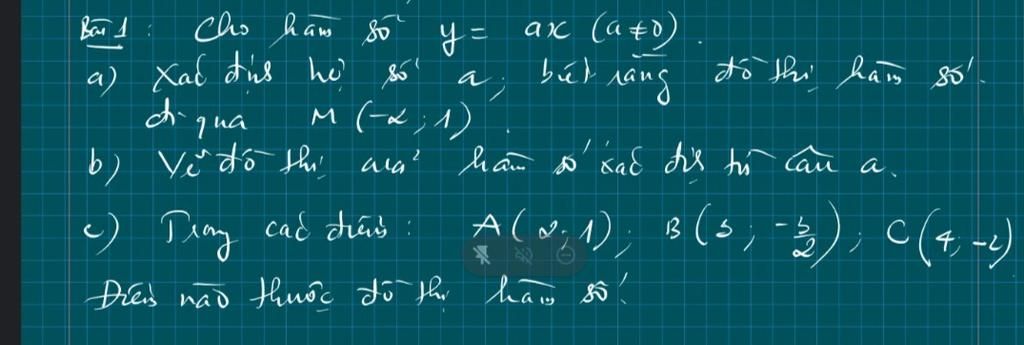 Bài 1 : Cho hàm số y = ax (a ≠ 0).
a) Xác định hệ số a, biết rằng đồ thị hàm số
đi qua M (-2; 1).
b) Vẽ đồ thị của hàm số xác định từ câu a.
c) Trong các điểm : A(2; 1); B(5; -5/2); C(4; -2)
Điểm nào thuộc đồ thị hàm số.